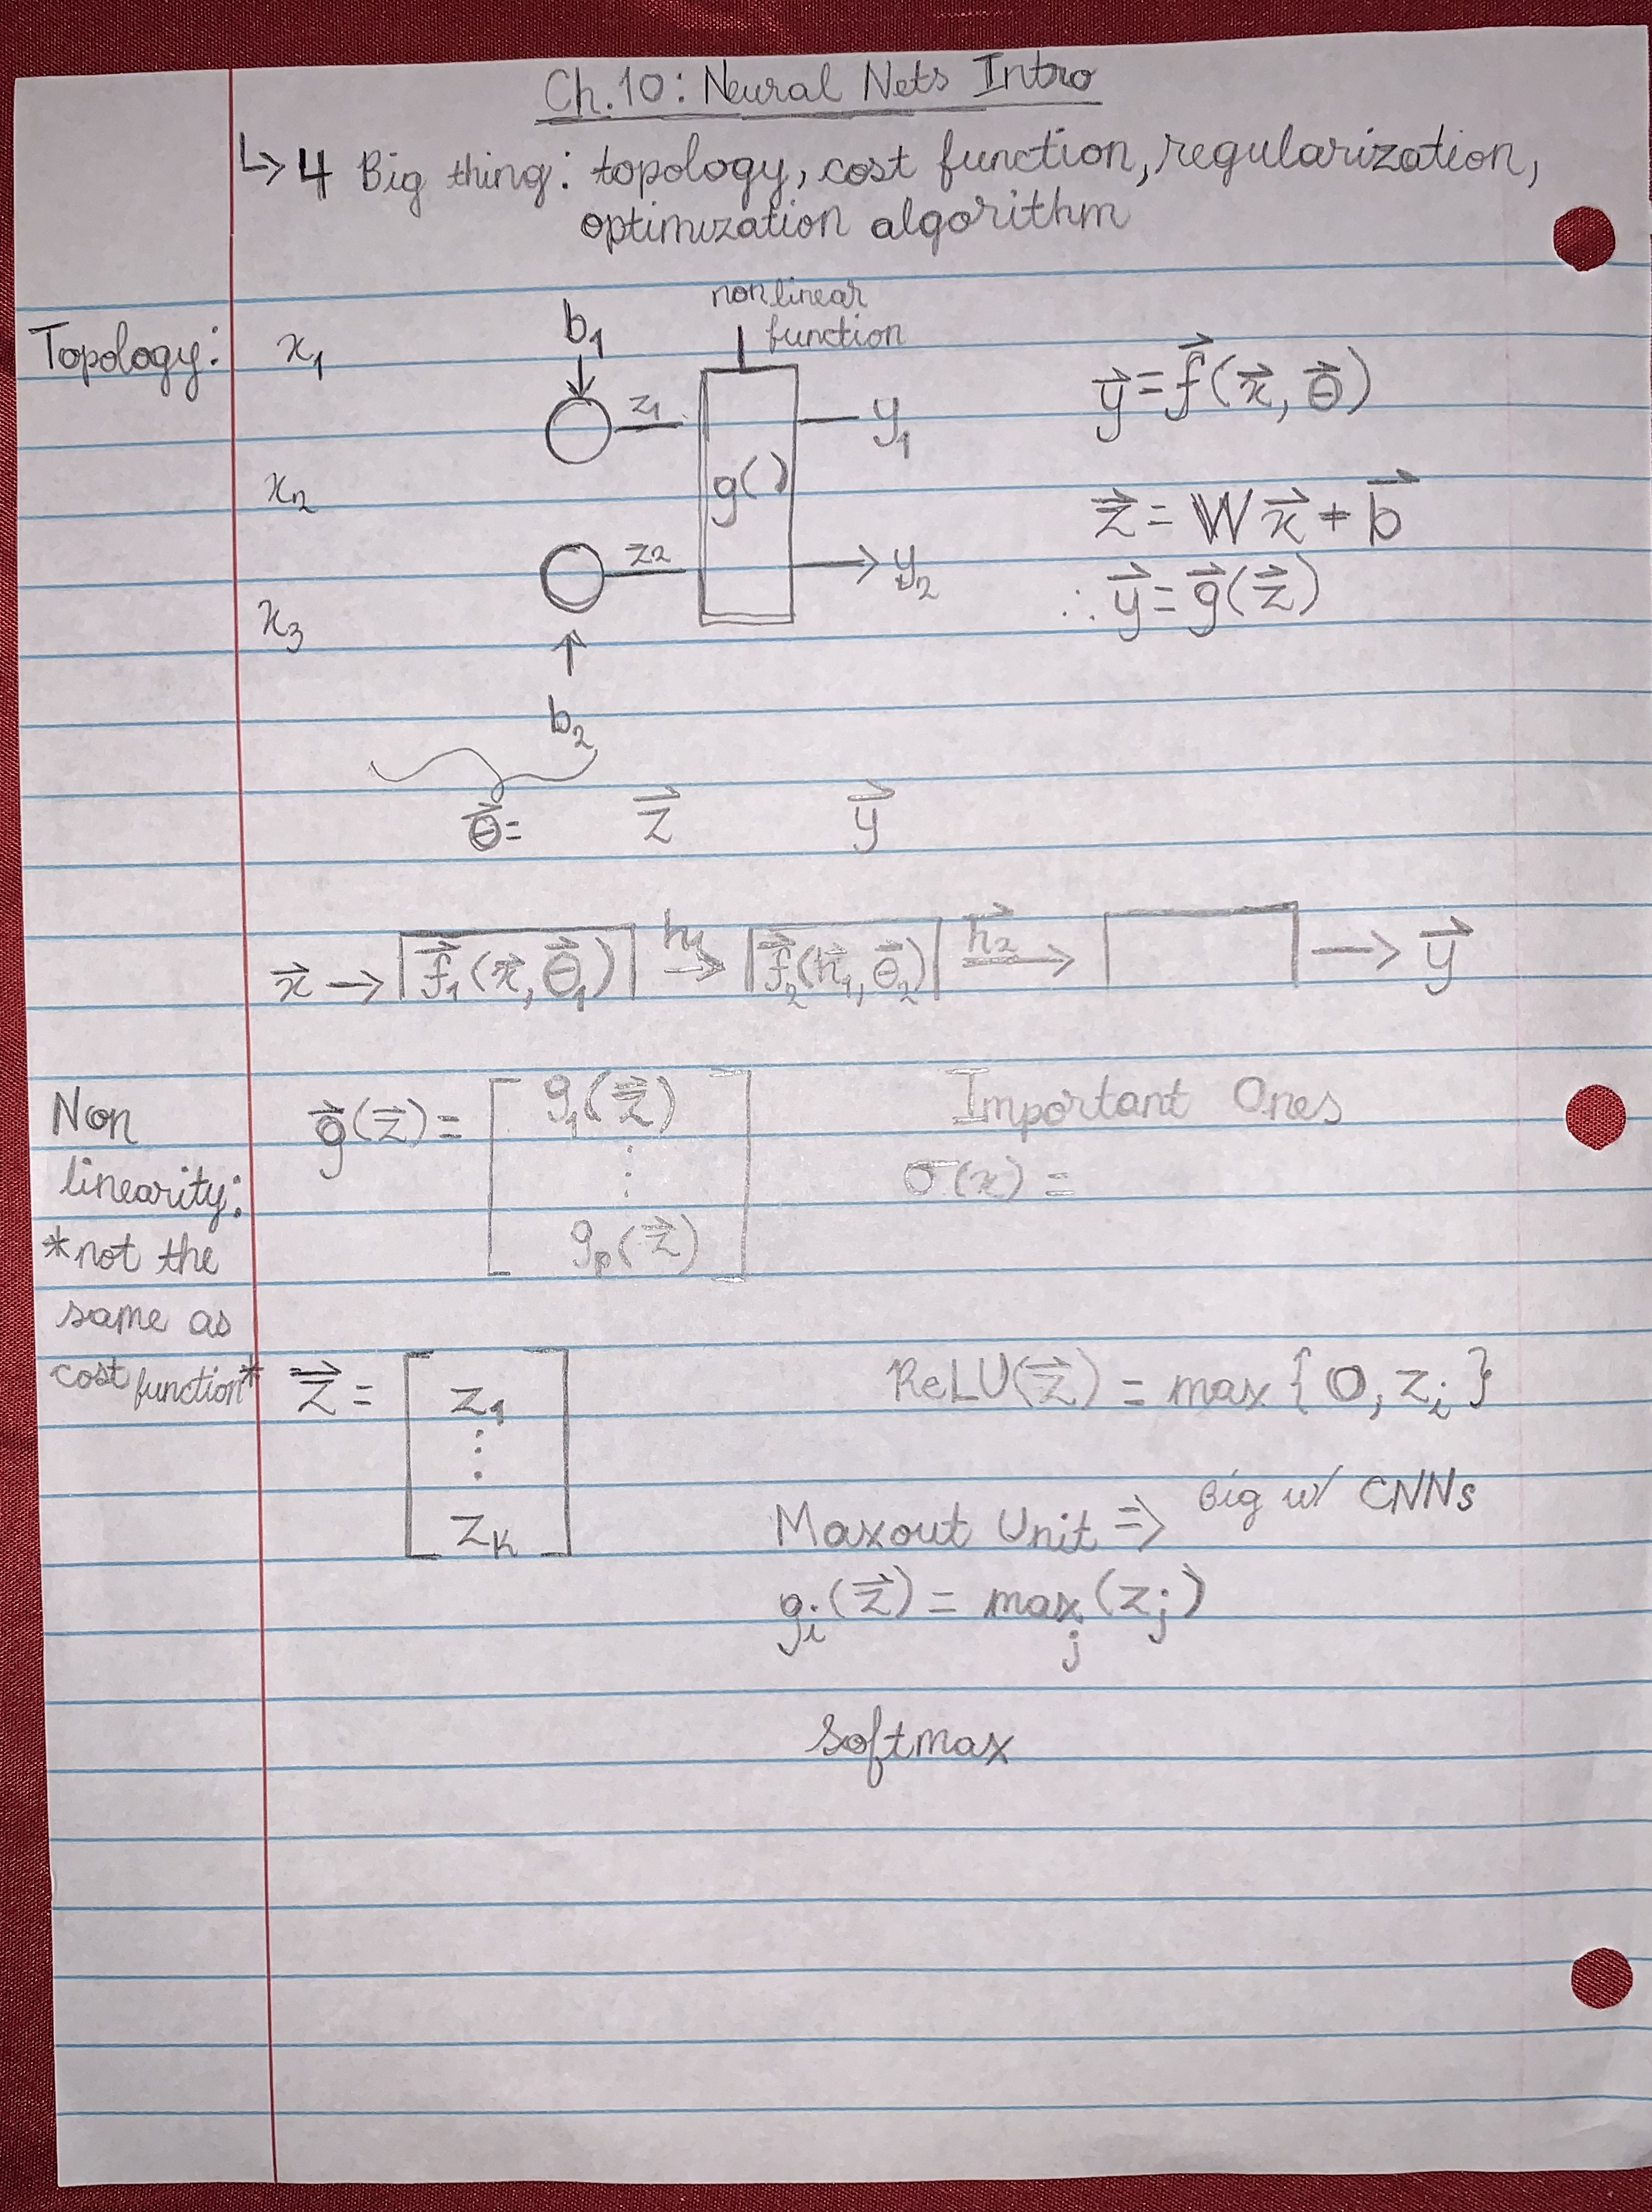 Ch.10: Neural Nets Intro
↳ 4 Big thing: topology, cost function, regularization,
optimization algorithm
Topology:
x₁
x₂
x₃
b₁
nonlinear
function
z₁
g()
y₁
z₂
y₂
b₂
y⃗ = f⃗(x⃗, θ⃗)
z⃗ = Wx⃗ + b⃗
∴ y⃗ = g⃗(z⃗)
θ⃗ = z⃗ y⃗
x⃗ → f⃗₁(x⃗, θ⃗₁) h⃗₁ → f⃗₂(h⃗₁, θ⃗₂) h⃗₂ → → y⃗
Non
linearity:
*not the
same as
cost function*
g⃗(z⃗) = [ g₁(z⃗)
⋮
gₚ(z⃗) ]
z⃗ = [ z₁
⋮
zₖ ]
Important Ones
σ(x) =
ReLU(z⃗) = max{0, zᵢ}
Maxout Unit ⇒ Big w/ CNNs
gᵢ(z⃗) = max (zⱼ)
j
Softmax